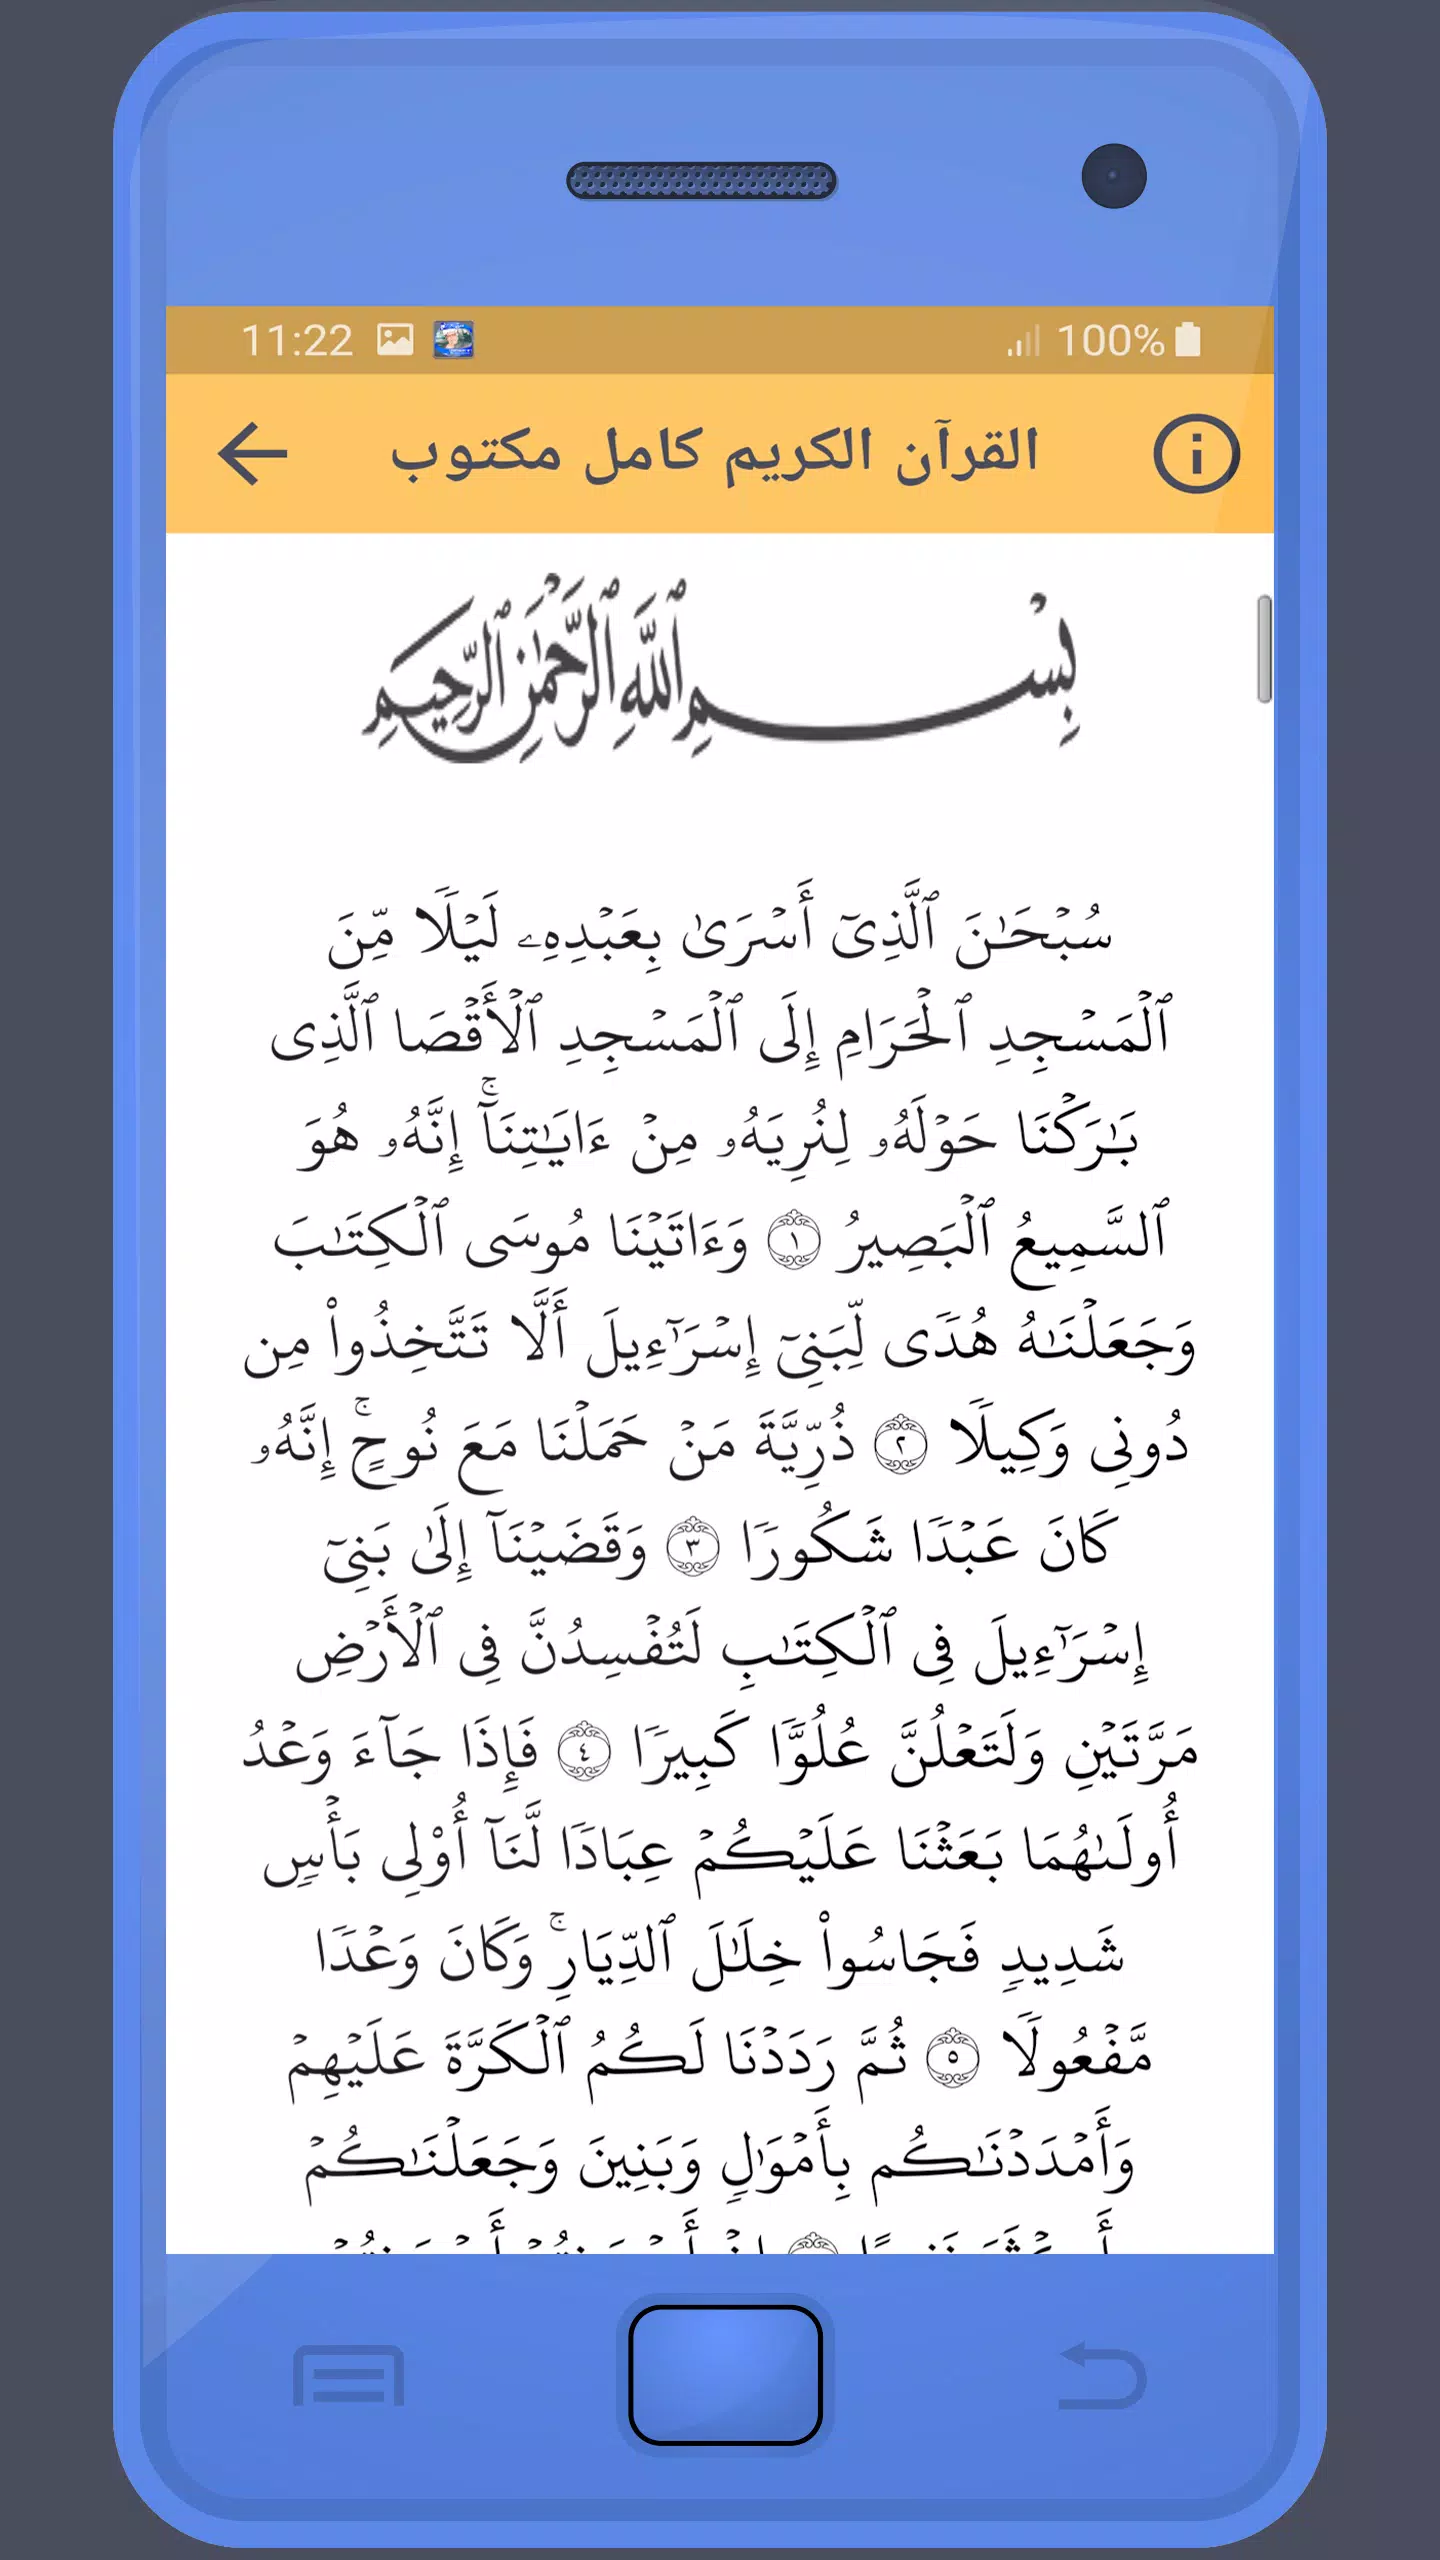 11:22 100%
القرآن الكريم كامل مكتوب
بِسْمِ ٱللَّهِ ٱلرَّحْمَٰنِ ٱلرَّحِيمِ
سُبْحَـٰنَ ٱلَّذِىٓ أَسْرَىٰ بِعَبْدِهِۦ لَيْلًا مِّنَ
ٱلْمَسْجِدِ ٱلْحَرَامِ إِلَى ٱلْمَسْجِدِ ٱلْأَقْصَا ٱلَّذِى
بَـٰرَكْنَا حَوْلَهُۥ لِنُرِيَهُۥ مِنْ ءَايَـٰتِنَآ ۚ إِنَّهُۥ هُوَ
ٱلسَّمِيعُ ٱلْبَصِيرُ ١ وَءَاتَيْنَا مُوسَى ٱلْكِتَـٰبَ
وَجَعَلْنَـٰهُ هُدًى لِّبَنِىٓ إِسْرَٰٓءِيلَ أَلَّا تَتَّخِذُوا۟ مِن
دُونِى وَكِيلًا ٢ ذُرِّيَّةَ مَنْ حَمَلْنَا مَعَ نُوحٍ ۚ إِنَّهُۥ
كَانَ عَبْدًا شَكُورًا ٣ وَقَضَيْنَآ إِلَىٰ بَنِىٓ
إِسْرَٰٓءِيلَ فِى ٱلْكِتَـٰبِ لَتُفْسِدُنَّ فِى ٱلْأَرْضِ
مَرَّتَيْنِ وَلَتَعْلُنَّ عُلُوًّا كَبِيرًا ٤ فَإِذَا جَآءَ وَعْدُ
أُولَىٰهُمَا بَعَثْنَا عَلَيْكُمْ عِبَادًا لَّنَآ أُو۟لِى بَأْسٍ
شَدِيدٍ فَجَاسُوا۟ خِلَـٰلَ ٱلدِّيَارِ ۚ وَكَانَ وَعْدًا
مَّفْعُولًا ٥ ثُمَّ رَدَدْنَا لَكُمُ ٱلْكَرَّةَ عَلَيْهِمْ
وَأَمْدَدْنَـٰكُم بِأَمْوَٰلٍ وَبَنِينَ وَجَعَلْنَـٰكُمْ